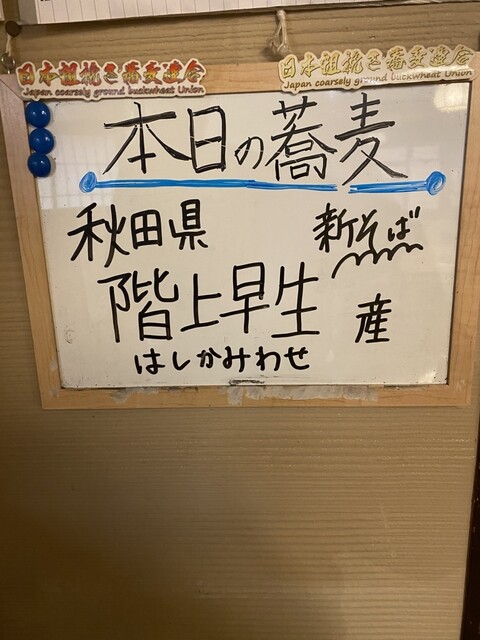 日本粗挽き蕎麦連合
Japan coarsely ground buckwheat Union
日本粗挽き蕎麦連合
Japan coarsely ground buckwheat Union
本日の蕎麦
秋田県 新そば
階上早生 産
はしかみわせ